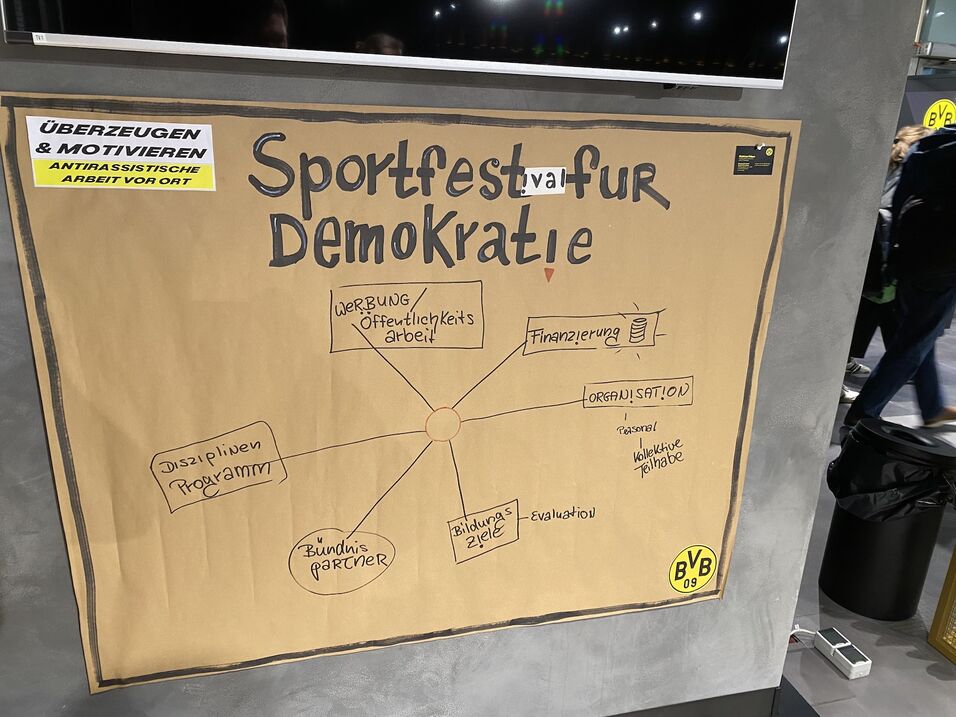 ÜBERZEUGEN
& MOTIVIEREN
ANTIRASSISTISCHE
ARBEIT VOR ORT
Sportfestival fuR
Demokratie
WeRBUNG/
Öffentlichkeits
arbeit
Finanzierung
ORGANISATION
Personal
Kollektive
Teilhabe
Disziplinen
Programm
Bündnis
paRTNER
Bildungs
ziele
Evaluation
BVB
09
BVB